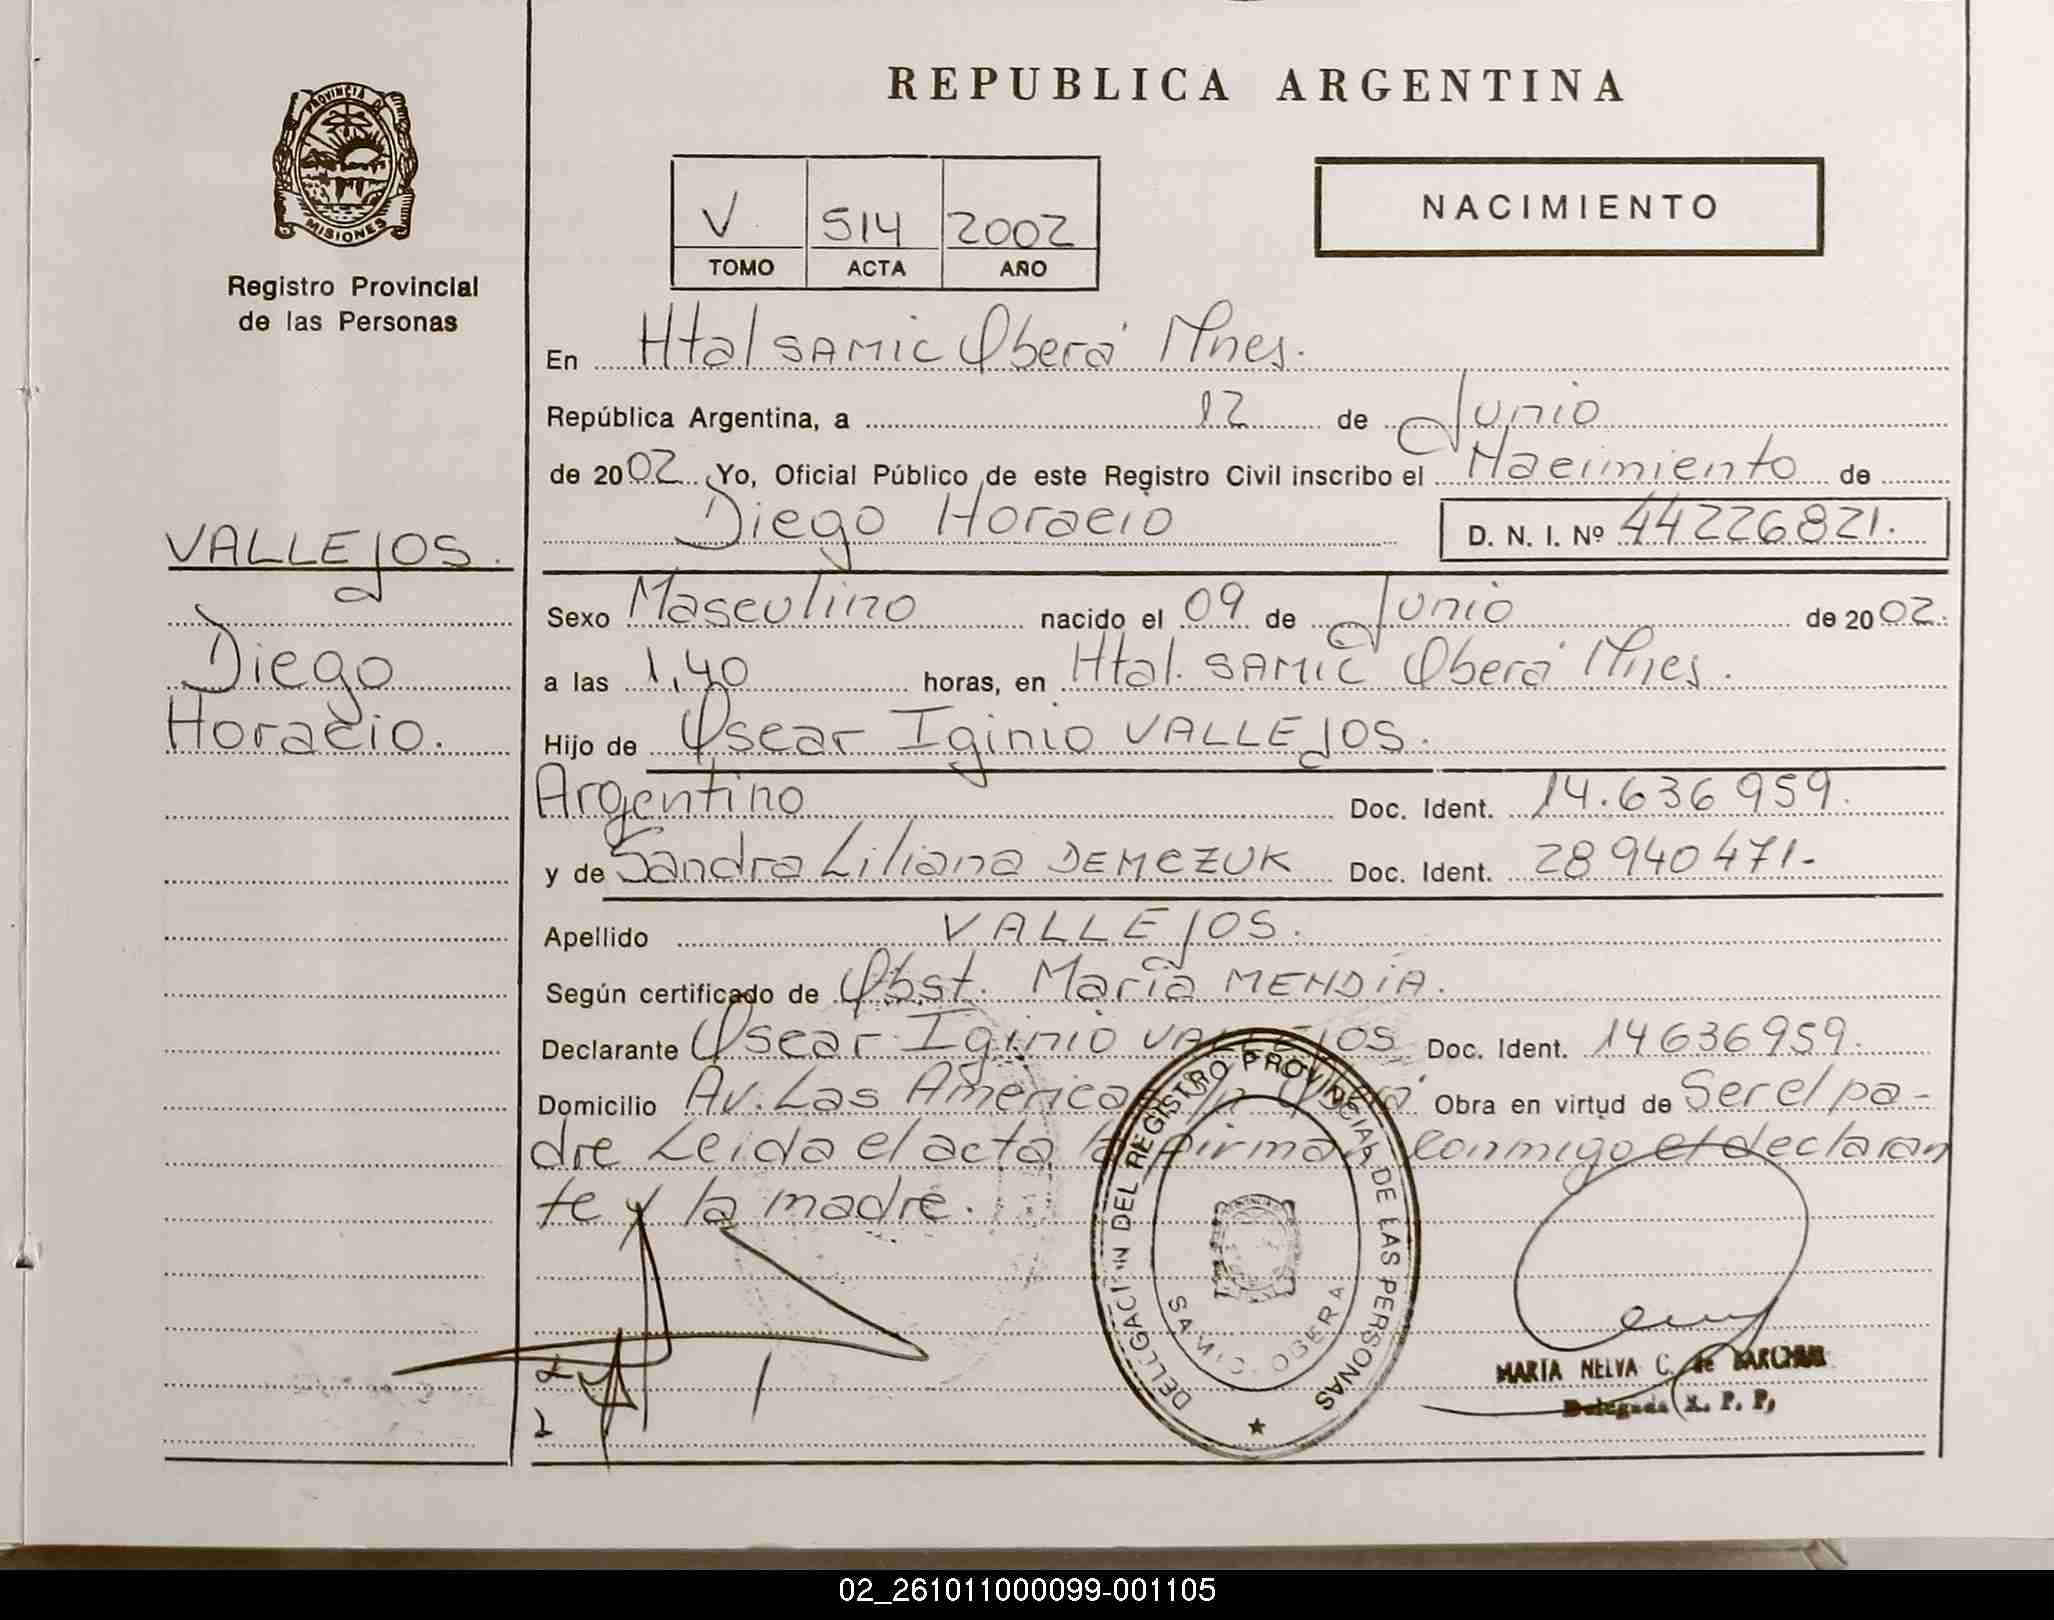 REPUBLICA ARGENTINA
PROVINCIA DE
MISIONES
Registro Provincial
de las Personas
V. 514 2002
TOMO ACTA AÑO
NACIMIENTO
En Htal SAMIC Oberá Mnes.
República Argentina, a 12 de Junio
de 2002. Yo, Oficial Público de este Registro Civil inscribo el Nacimiento de
Diego Horacio D. N. I. Nº 44226821.
VALLEJOS.
Diego
Horacio.
Sexo Masculino nacido el 09 de Junio de 2002.
a las 1,40 horas, en Htal. SAMIC Oberá Mnes.
Hijo de Oscar Iginio VALLEJOS.
Argentino Doc. Ident. 14.636959.
y de Sandra Liliana DEMCZUK Doc. Ident. 28940471.-
Apellido VALLEJOS.
Según certificado de Obst. María MENDIA.
Declarante Oscar Iginio VALLEJOS Doc. Ident. 14636959.
Domicilio Av. Las Americas s/n Oberá Obra en virtud de Ser el pa-
dre Leida el acta la firman conmigo el declaran
te y la madre.
DELEGACION DEL REGISTRO PROVINCIAL DE LAS PERSONAS
SAMIC. OBERA
MARIA NELVA C. de
Delegada R. P. P.
02_261011000099-001105